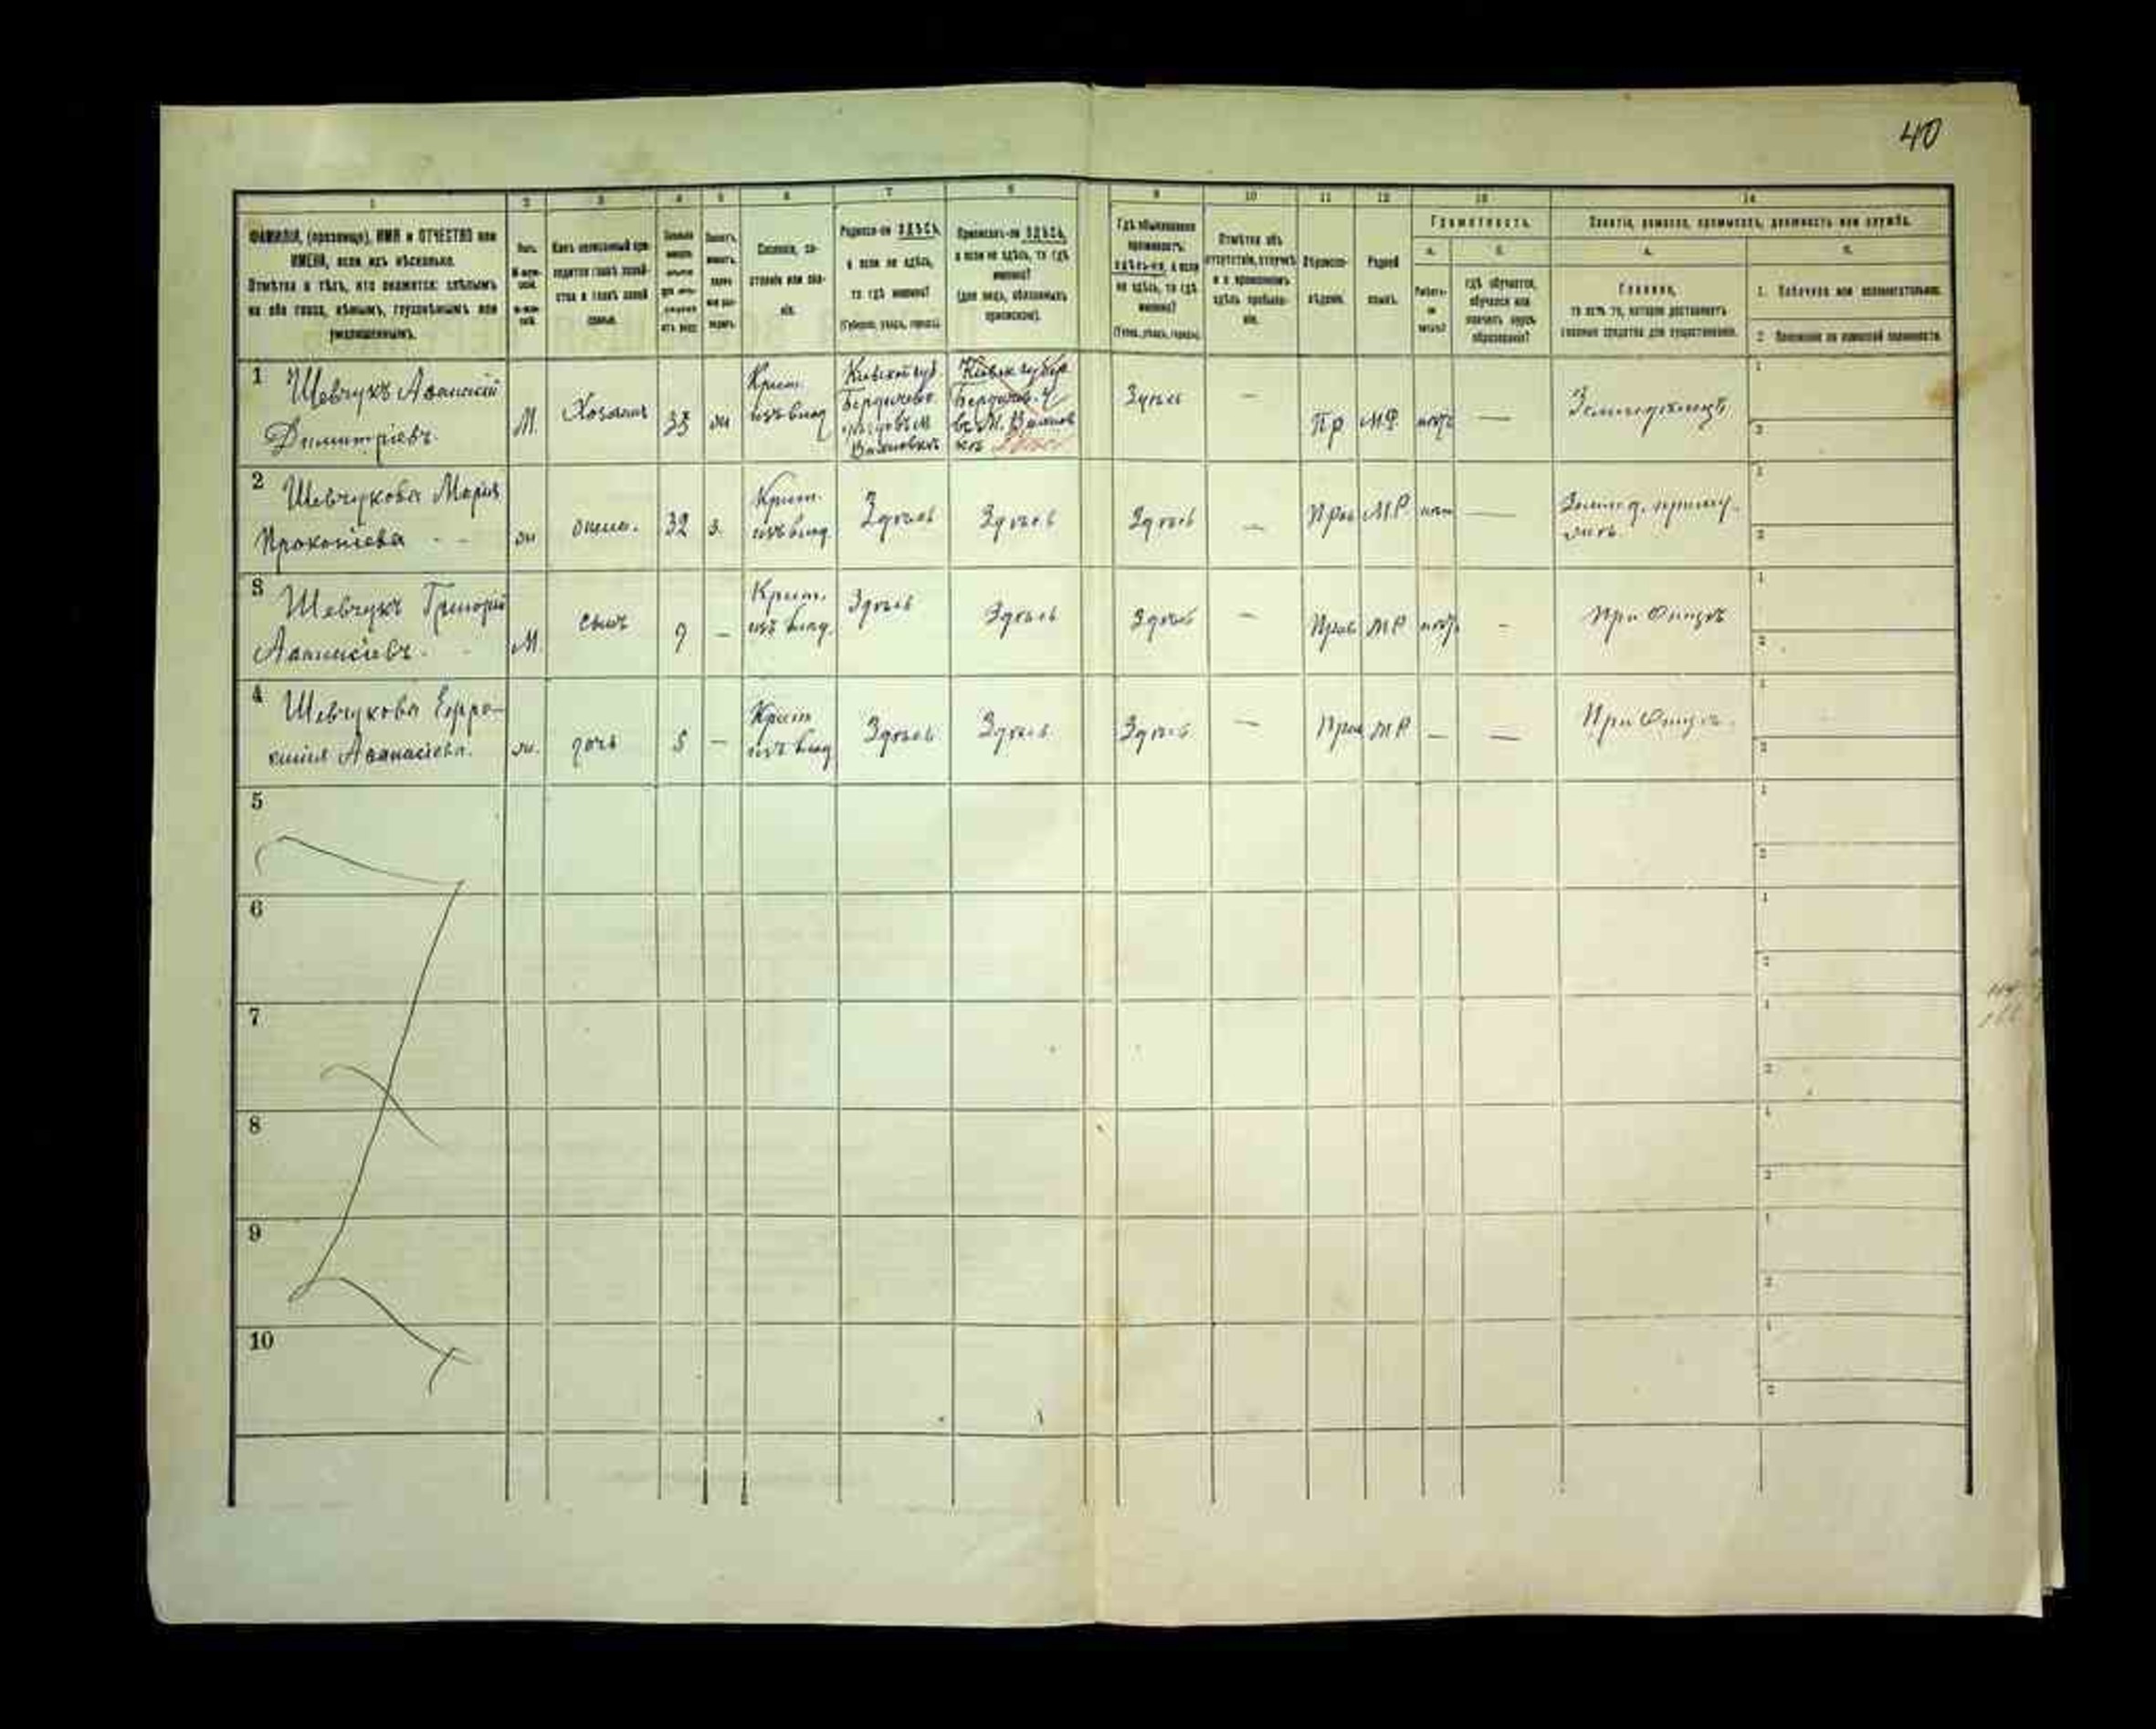 40
1 2 3 4 5 6 7 8 9 10 11 12 13 14
ФАМИЛІЯ, (прозвище), ИМЯ и ОТЧЕСТВО или
ИМЕНА, если ихъ нѣсколько.
Отмѣтка о тѣхъ, кто окажется: слѣпымъ
на оба глаза, нѣмымъ, глухонѣмымъ или
умалишеннымъ.
Полъ.
Какъ записанный при-
ходится главѣ хозяй-
ства и главѣ своей
семьи.
Сословіе, со-
стояніе или зва-
ніе.
Родился-ли ЗДѢСЬ,
а если не здѣсь,
то гдѣ именно?
(Губернія, уѣздъ, городъ).
Приписанъ-ли ЗДѢСЬ,
а если не здѣсь, то гдѣ
именно?
(для лицъ, обязанныхъ
припискою).
Гдѣ обыкновенно
проживаетъ:
здѣсь-ли, а если
не здѣсь, то гдѣ
именно?
(Губер., уѣздъ, городъ).
Отмѣтка объ
отсутствіи, отлучкѣ
и о временномъ
здѣсь пребыва-
ніи.
Вѣроиспо-
вѣданіе.
Родной
языкъ.
Грамотность.
а. б.
Умѣетъ-
ли
читать?
гдѣ обучается,
обучался или
кончилъ курсъ
образованія?
Занятіе, ремесло, промыселъ, должность или служба.
а. б.
Главное,
то есть то, которое доставляетъ
главныя средства для существованія.
1. Побочное или вспомогательное.
2. Положеніе по воинской повинности.
1 Шевчукъ Аѳанасій
Димитріевъ.
М. Хозяинъ 35 Крест.
изъ влад.
Кіевской губ.
Бердичевс
въ М.
Вахновкѣ
Кіевск губер
Бердичев. У
въ М. Вахнов
кѣ
Здѣсь — Пр М.Р. нѣтъ — Земледѣлецъ
2 Шевчукова Марія
Прокопіева
ж жена. 32 з. Крест.
изъ влад.
Здѣсь Здѣсь Здѣсь — Прав МР нѣт —
3 Шевчукъ Григорій
Аѳанасіевъ.
М сынъ 9 — Крест.
изъ влад.
Здѣсь Здѣсь Здѣсь — Прав МР нѣтъ - При Отцѣ
4 Шевчукова Евфро-
синія Аѳанасіева.
ж. дочь 5 — Крест
изъ влад
Здѣсь Здѣсь Здѣсь — Прав МР — — При Отцѣ.
5
6
7
8
9
10